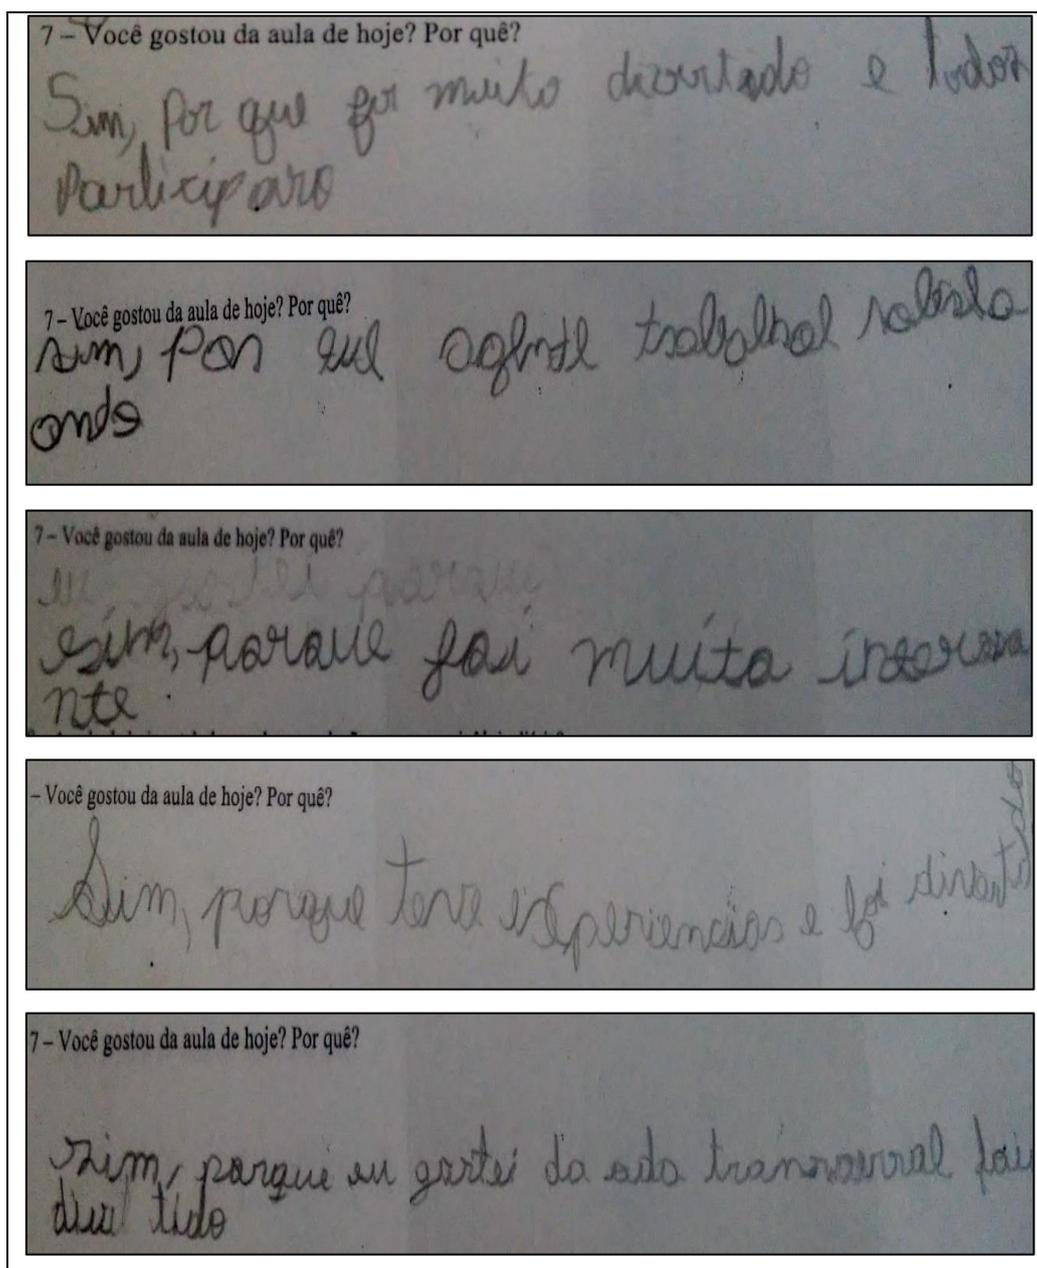 7 – Você gostou da aula de hoje? Por quê?
Sim, Por que foi muito divertido e todos
Participaro
7 – Você gostou da aula de hoje? Por quê?
sim, por que agente trabalhol sobre a
onda
7 – Você gostou da aula de hoje? Por quê?
eu gostei porque
sim, porque foi muito interesa
nte.
– Você gostou da aula de hoje? Por quê?
Sim, porque teve experiencias e foi divertido
7 – Você gostou da aula de hoje? Por quê?
sim, porque eu gostei da oda transversal foi
diver tido